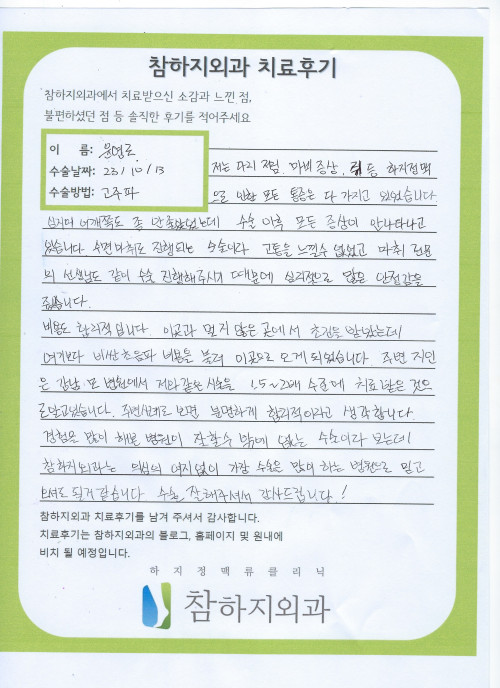 참하지외과 치료후기
참하지외과에서 치료받으신 소감과 느낀 점,
불편하셨던 점 등 솔직한 후기를 적어주세요
이 름:
수술날짜: 23/10/13
수술방법: 고주파
저는 다리 저림, 마비증상, 쥐 등 하지정맥
으로 인한 모든 통증은 다 가지고 있었습니다
심지어 어깨쪽도 좀 안좋았었는데 수술 이후 모든 증상이 안나타나고
있습니다 수면마취로 진행되는 수술이라 고통을 느낄수 없었고 마취 전문
의 선생님도 같이 수술 진행해주시기 때문에 심리적으로 많은 안정감을
줬습니다.
비용도 합리적입니다. 이곳과 멀지 않은 곳에서 초진을 받았는데
여기보다 비싼 초음파 비용을 불러 이곳으로 오게 되었습니다. 주변 지인
은 강남 모 병원에서 저와 같은 시술을 1.5~2배 수준에 치료 받은 것으
로 알고있습니다. 주변시세로 보면 분명하게 합리적이라고 생각합니다.
경험은 많이 해본 병원이 잘할수 밖에 없는 수술이라 보는데
참하지외과는 의심의 여지없이 가장 수술은 많이 하는 병원으로 믿고
오셔도 될거 같습니다 수술 잘해주셔서 감사드립니다!
참하지외과 치료후기를 남겨 주셔서 감사합니다.
치료후기는 참하지외과의 블로그, 홈페이지 및 원내에
비치 될 예정입니다.
하지정맥류클리닉
참하지외과